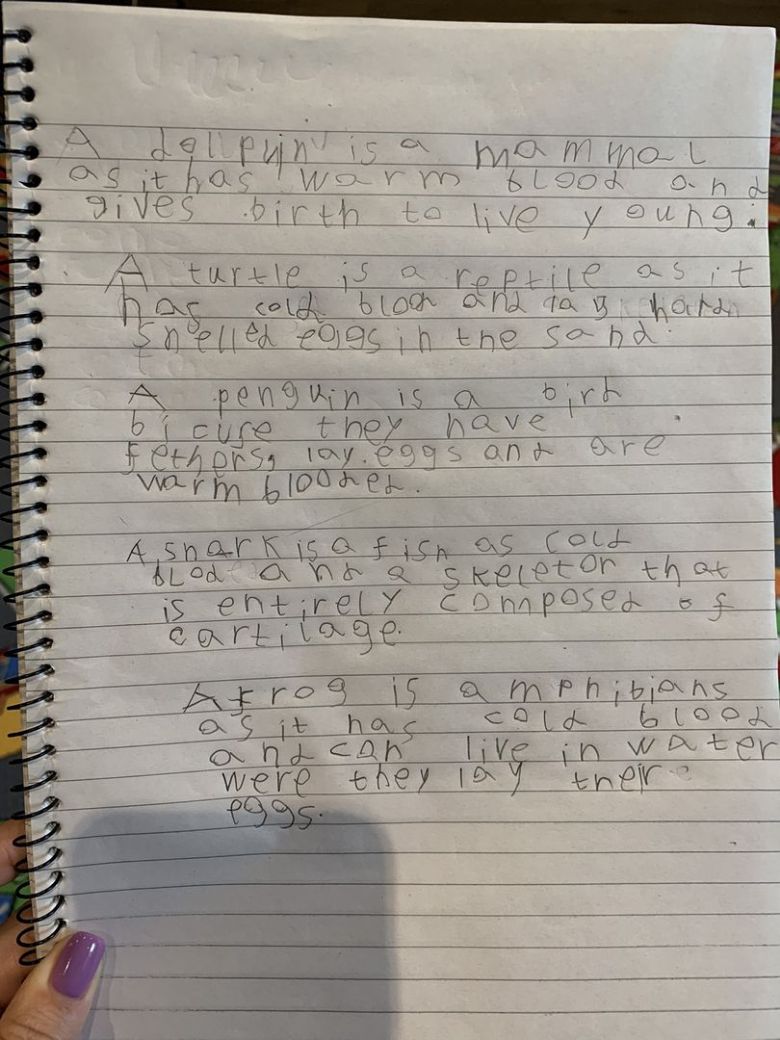 A dollphin is a mammal
as it has warm blood and
gives birth to live young.
A turtle is a reptile as it
has cold blood and lays hard
shelled eggs in the sand.
A penguin is a bird
bicuse they have
fethers, lay eggs and are
warm blooded.
A shark is a fish as cold
blod and a skeleton that
is entirely composed of
cartilage.
A frog is amphibians
as it has cold blood
and can live in water
were they lay their
eggs.